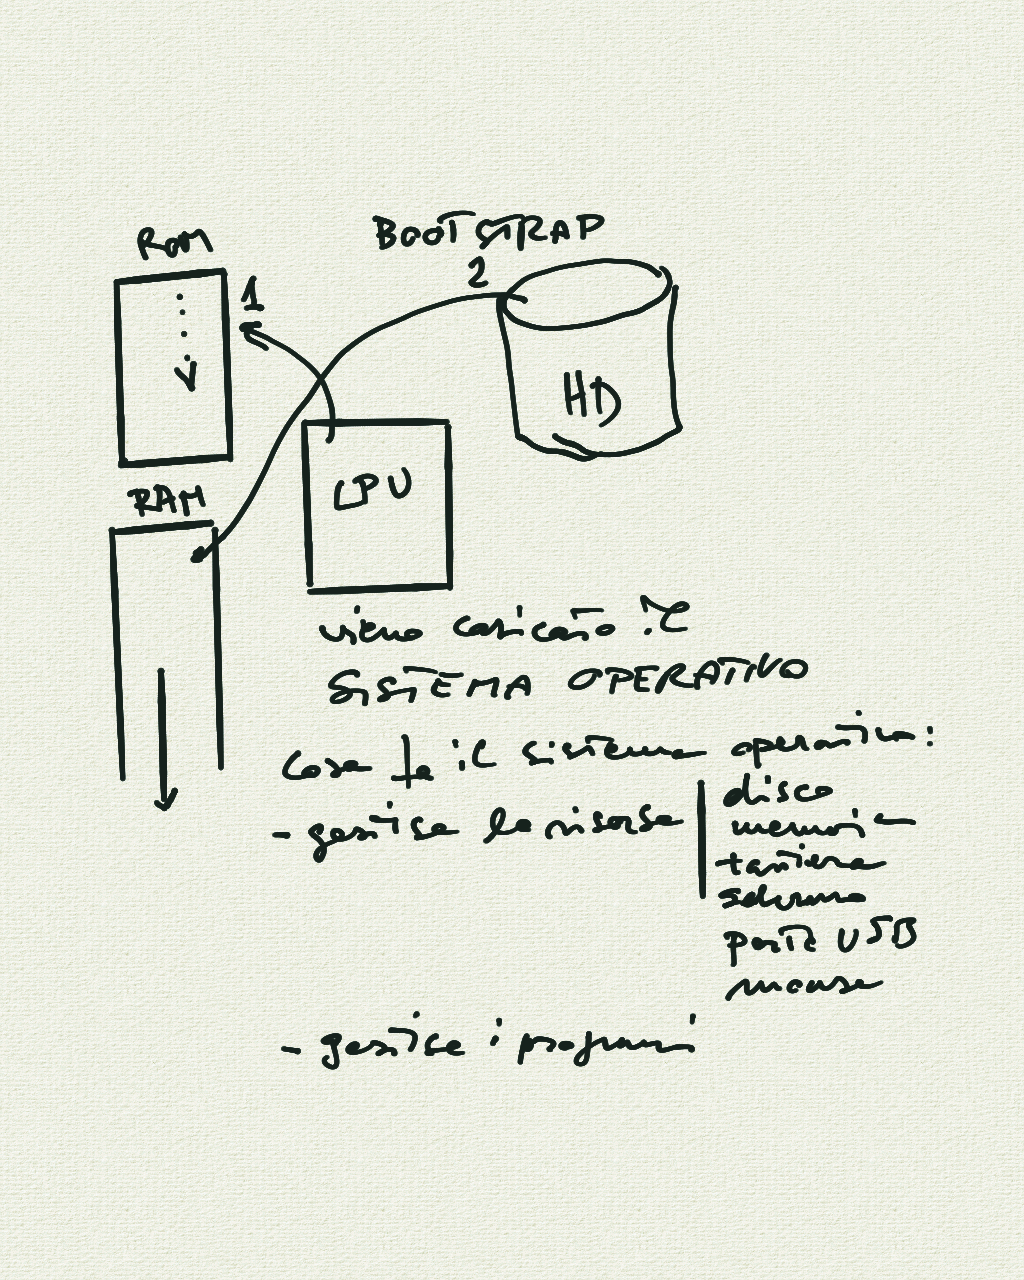 ROM
BOOTSTRAP
1
2
HD
CPU
RAM
viene caricato il
SISTEMA OPERATIVO
Cosa fa il sistema operativo:
- gestisce le risorse
disco
memoria
tastiera
schermo
porte USB
mouse
- gestisce i programmi